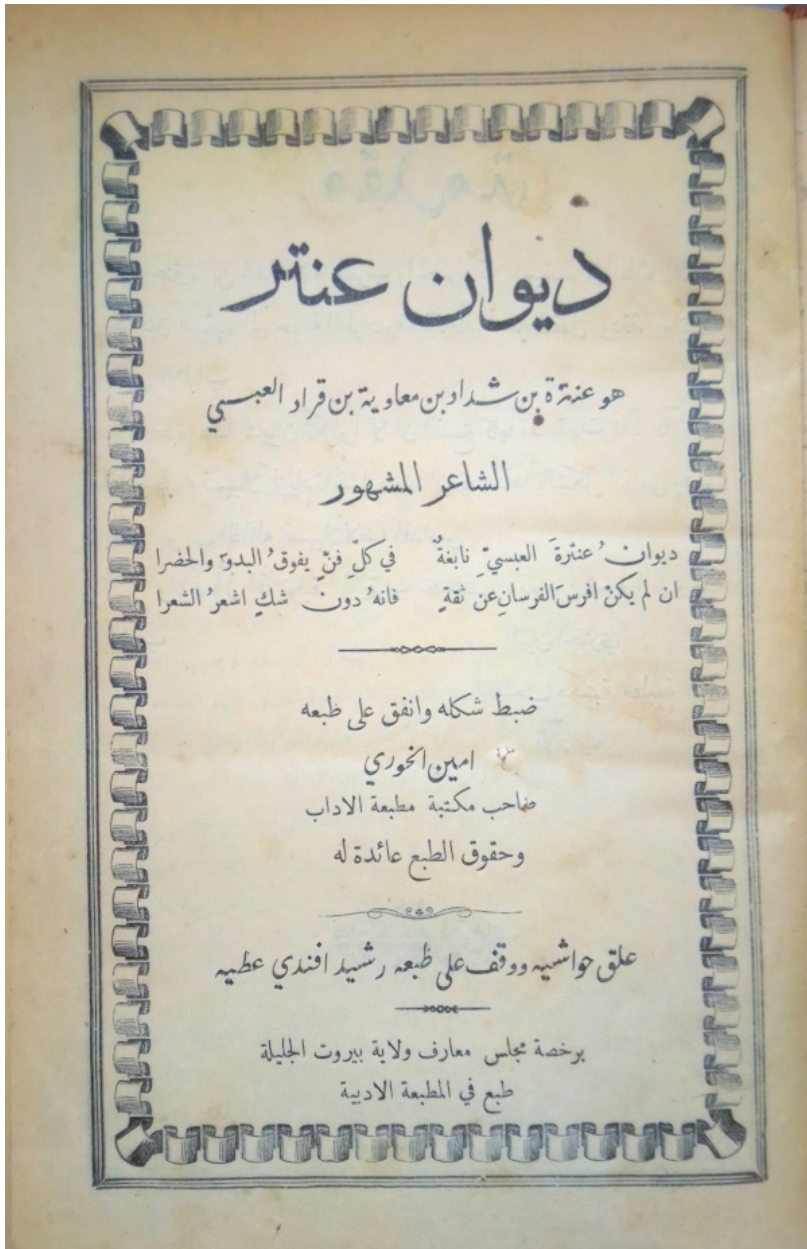 ديوان عنتر
هو عنترة بن شداد بن معاوية بن قراد العبسي
الشاعر المشهور
ديوانُ عنترةَ العبسيّ نابغةٌ في كلّ فنٍّ يفوقُ البدوَ والحضرا
ان لم يكنْ افرسَ الفرسانِ عن ثقةٍ فانهُ دونَ شكٍ اشعرُ الشعرا
ضبط شكله وانفق على طبعه
امين الخوري
صاحب مكتبة مطبعة الاداب
وحقوق الطبع عائدة له
علق حواشيه ووقف على طبعه رشيد افندي عطيه
برخصة مجلس معارف ولاية بيروت الجليلة
طبع في المطبعة الادبية